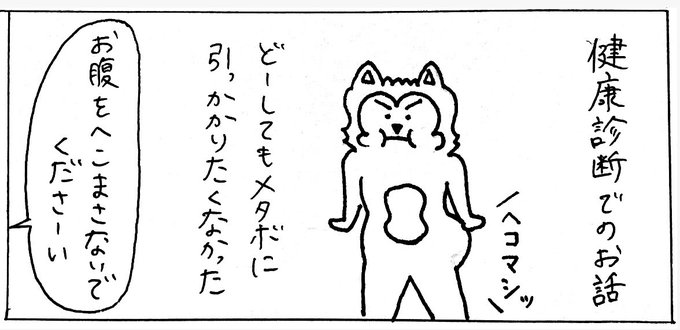 健康診断でのお話
ヘコマシッ
どーしてもメタボに
引っかかりたくなかった
お腹をへこまさないで
くださーい